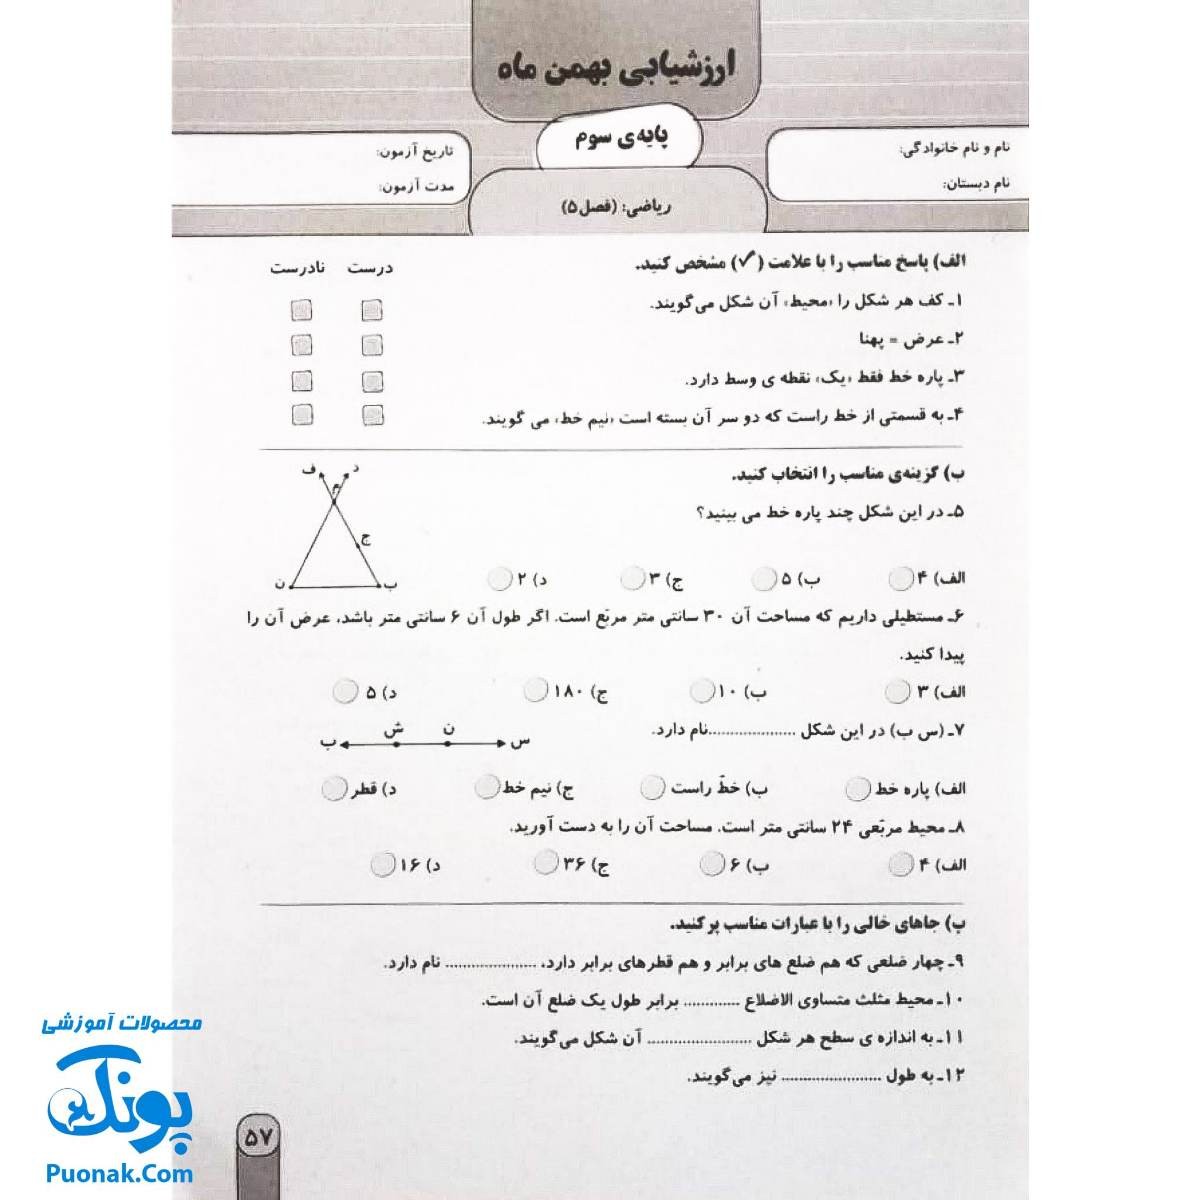 ارزشیابی بهمن ماه
پایه‌ی سوم
نام و نام خانوادگی:
نام دبستان:
تاریخ آزمون:
مدت آزمون:
ریاضی: (فصل ۵)
الف) پاسخ مناسب را با علامت (✓) مشخص کنید.
درست نادرست
۱ـ کف هر شکل را «محیط» آن شکل می‌گویند.
۲ـ عرض = پهنا
۳ـ پاره خط فقط «یک» نقطه ی وسط دارد.
۴ـ به قسمتی از خط راست که دو سر آن بسته است «نیم خط» می گویند.
ب) گزینه‌ی مناسب را انتخاب کنید.
۵ـ در این شکل چند پاره خط می بینید؟
ف د
م
ج
ن ب
الف) ۴ ب) ۵ ج) ۳ د) ۲
۶ـ مستطیلی داریم که مساحت آن ۳۰ سانتی متر مربّع است. اگر طول آن ۶ سانتی متر باشد، عرض آن را
پیدا کنید.
الف) ۳ ب) ۱۰ ج) ۱۸۰ د) ۵
۷ـ (س ب) در این شکل .....................نام دارد.
س ن ش ب
الف) پاره خط ب) خطّ راست ج) نیم خط د) قطر
۸ـ محیط مربّعی ۲۴ سانتی متر است. مساحت آن را به دست آورید.
الف) ۴ ب) ۶ ج) ۳۶ د) ۱۶
پ) جاهای خالی را با عبارات مناسب پر کنید.
۹ـ چهار ضلعی که هم ضلع های برابر و هم قطرهای برابر دارد، ..................... نام دارد.
۱۰ـ محیط مثلث متساوی الاضلاع ............. برابر طول یک ضلع آن است.
۱۱ـ به اندازه ی سطح هر شکل ........................ آن شکل می‌گویند.
۱۲ـ به طول ....................... نیز می‌گویند.
۵۷
محصولات آموزشی
پونک
Puonak.Com